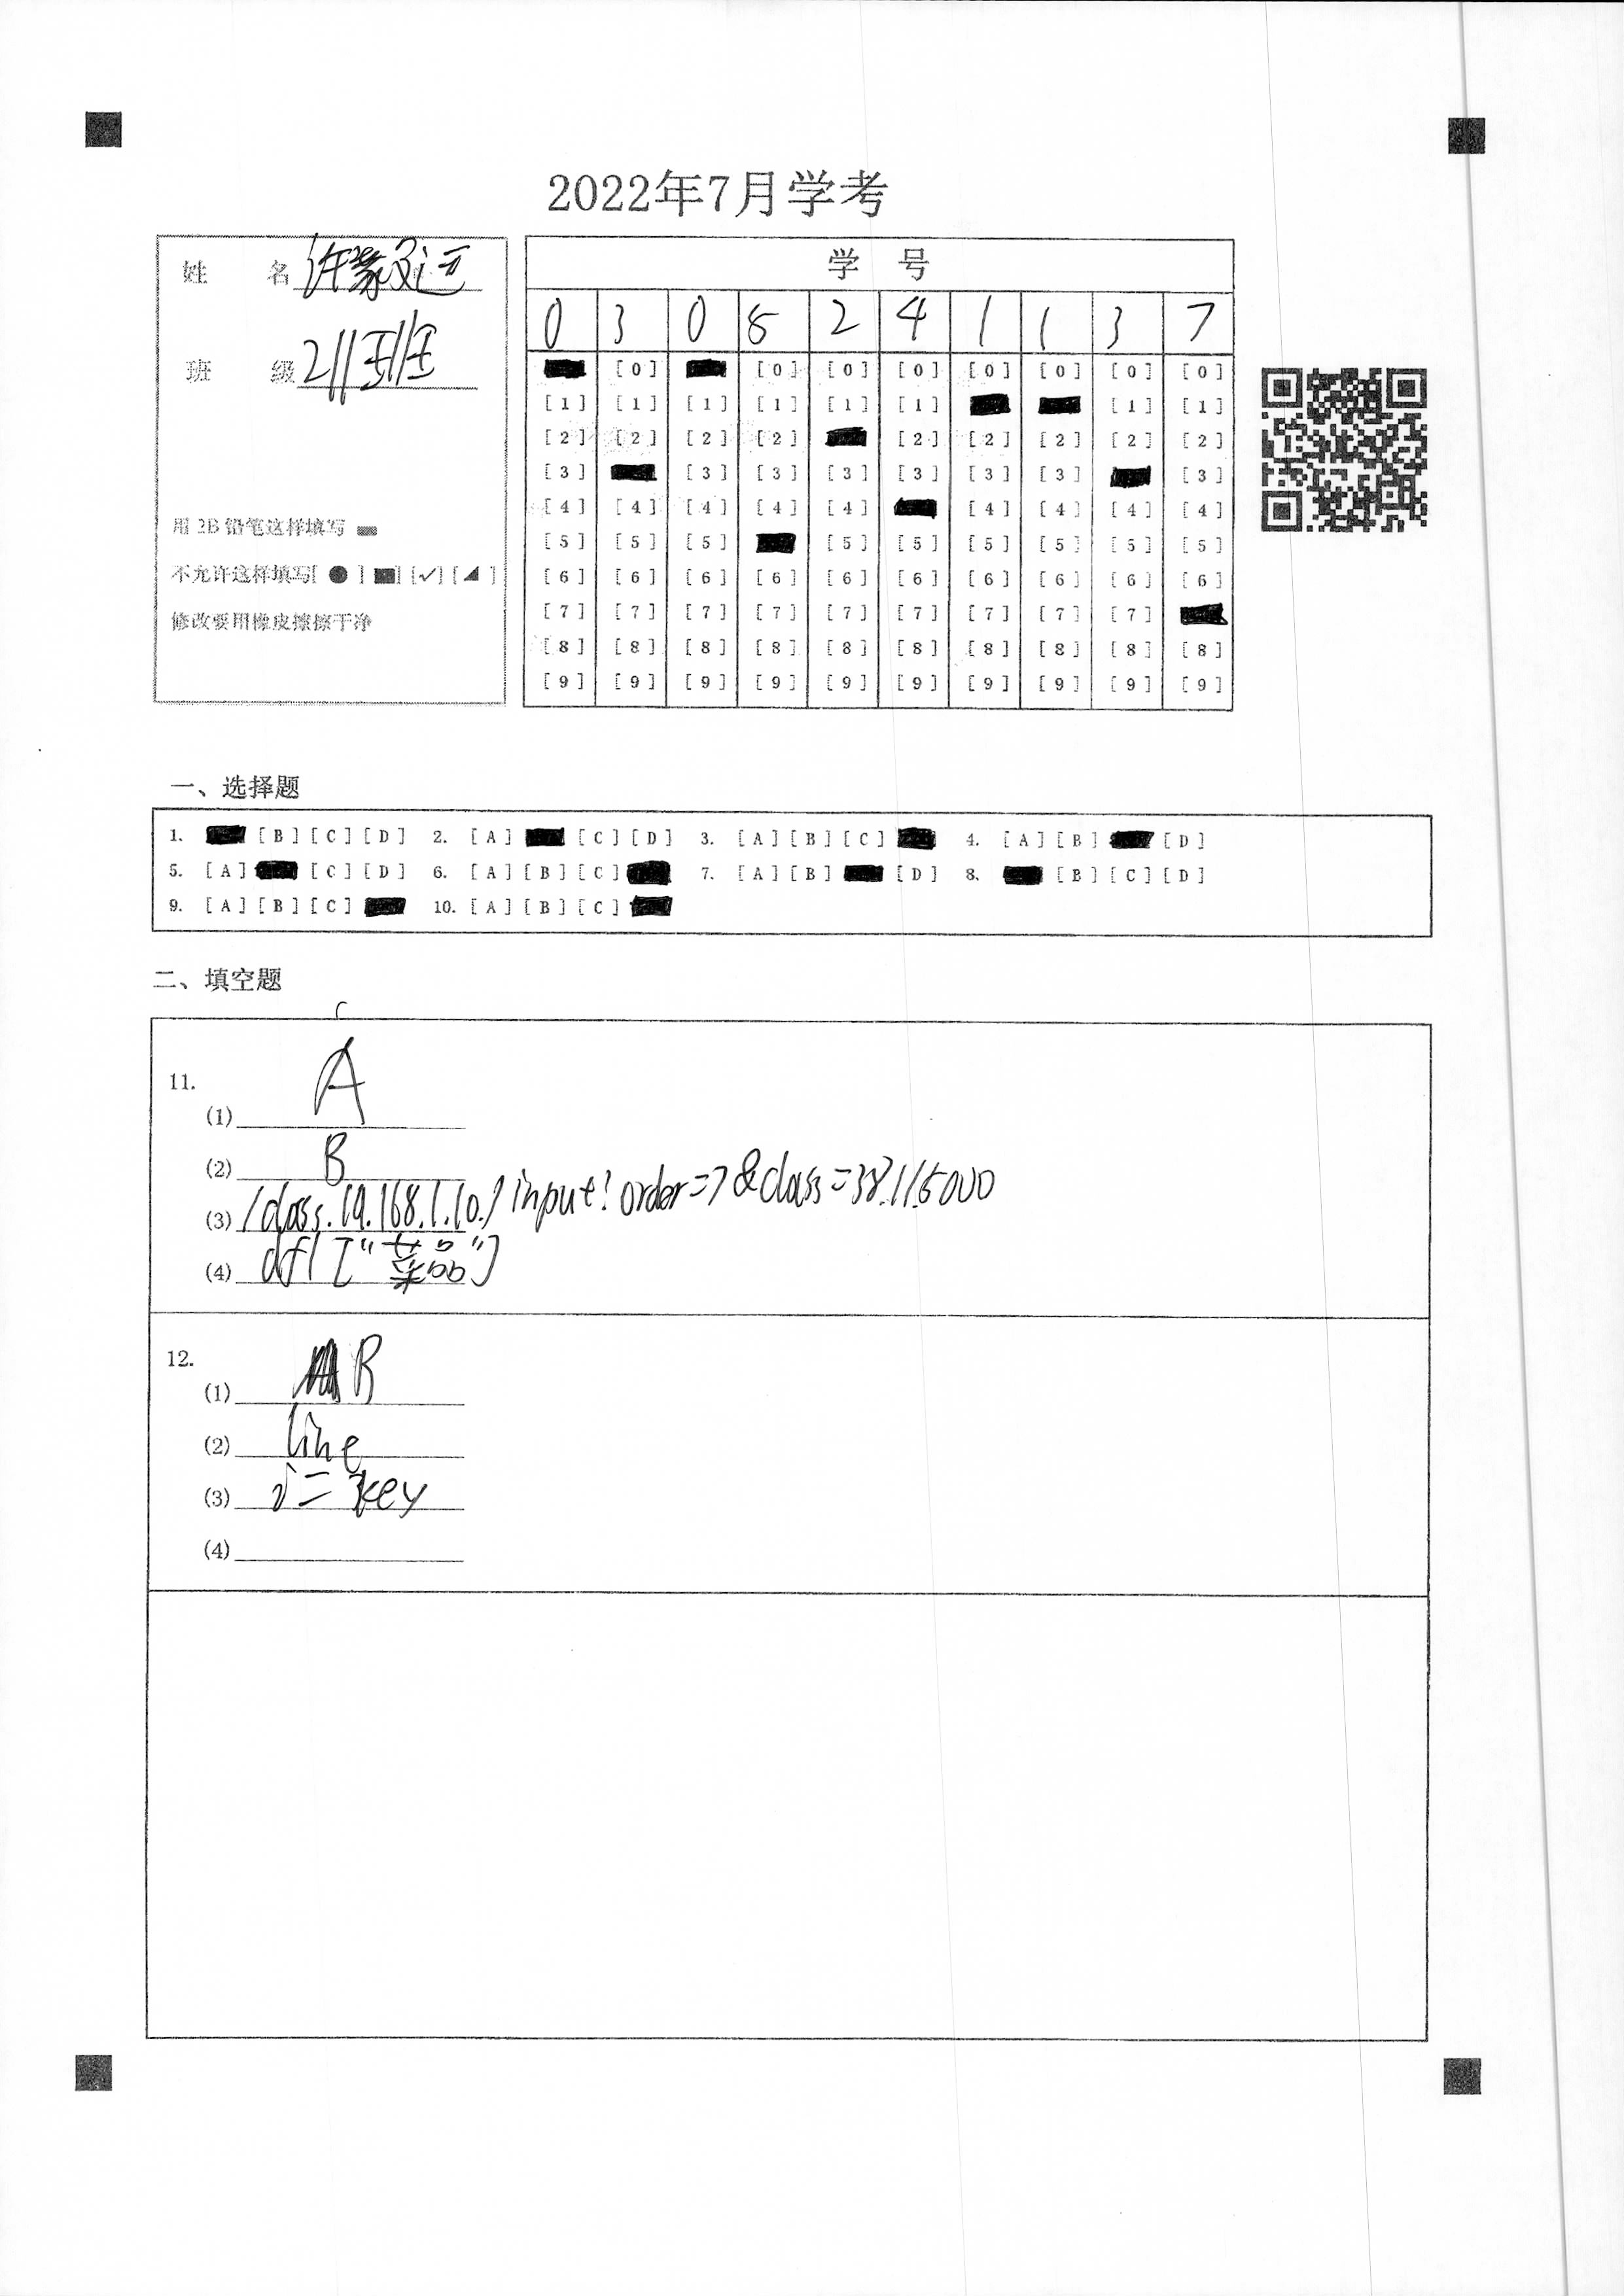 2022年7月学考
姓 名 许豪及运
班 级 211班
用 2B 铅笔这样填写
不允许这样填写[ ● ] [■] [✓] [ ◢ ]
修改要用橡皮擦擦干净
学 号
0 3 0 5 2 4 1 1 3 7
[0] [0] [0] [0] [0] [0] [0] [0]
[1] [1] [1] [1] [1] [1] [1] [1]
[2] [2] [2] [2] [2] [2] [2] [2] [2]
[3] [3] [3] [3] [3] [3] [3] [3]
[4] [4] [4] [4] [4] [4] [4] [4] [4]
[5] [5] [5] [5] [5] [5] [5] [5] [5]
[6] [6] [6] [6] [6] [6] [6] [6] [6] [6]
[7] [7] [7] [7] [7] [7] [7] [7] [7]
[8] [8] [8] [8] [8] [8] [8] [8] [8] [8]
[9] [9] [9] [9] [9] [9] [9] [9] [9] [9]
一、选择题
1. [B] [C] [D] 2. [A] [C] [D] 3. [A] [B] [C] 4. [A] [B] [D]
5. [A] [C] [D] 6. [A] [B] [C] 7. [A] [B] [D] 8、 [B] [C] [D]
9. [A] [B] [C] 10. [A] [B] [C]
二、填空题
11.
(1) A
(2) B
(3) /class.19.168.1.10./input! order=7&class=38.1/5000
(4) df1["菜品"]
12.
(1) B
(2) line
(3) i=key
(4)